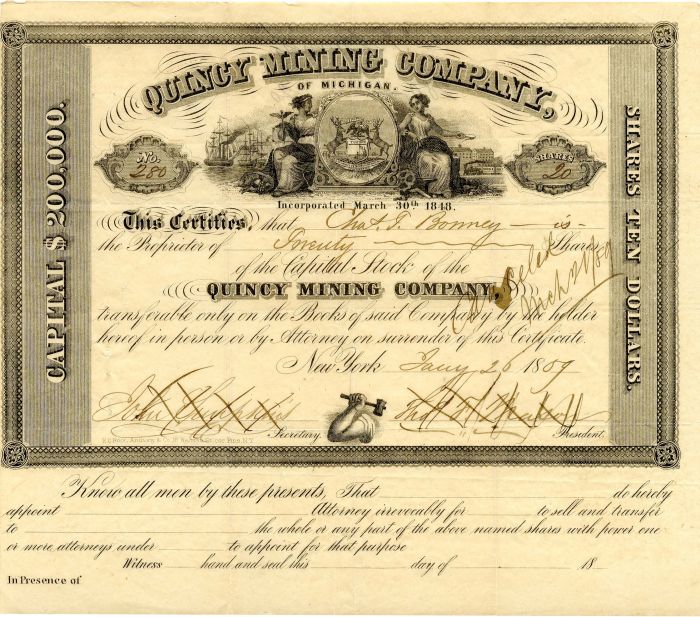 QUINCY MINING COMPANY,
OF MICHIGAN.
CAPITAL $200,000.
SHARES TEN DOLLARS.
No. 280
SHARES 20
Incorporated March 30th 1848.
This Certifies, that Chas. T. Bonney is
the Proprietor of Twenty Shares
of the Capital Stock of the
QUINCY MINING COMPANY,
transferable only on the Books of said Company by the holder
hereof in person or by Attorney on surrender of this Certificate.
New York Jany 26 1859
Secretary. President.
Know all men by these presents, That do hereby
appoint Attorney irrevocably for to sell and transfer
to the whole or any part of the above named shares with power one
or more attorneys under to appoint for that purpose
Witness hand and seal this day of 18
In Presence of